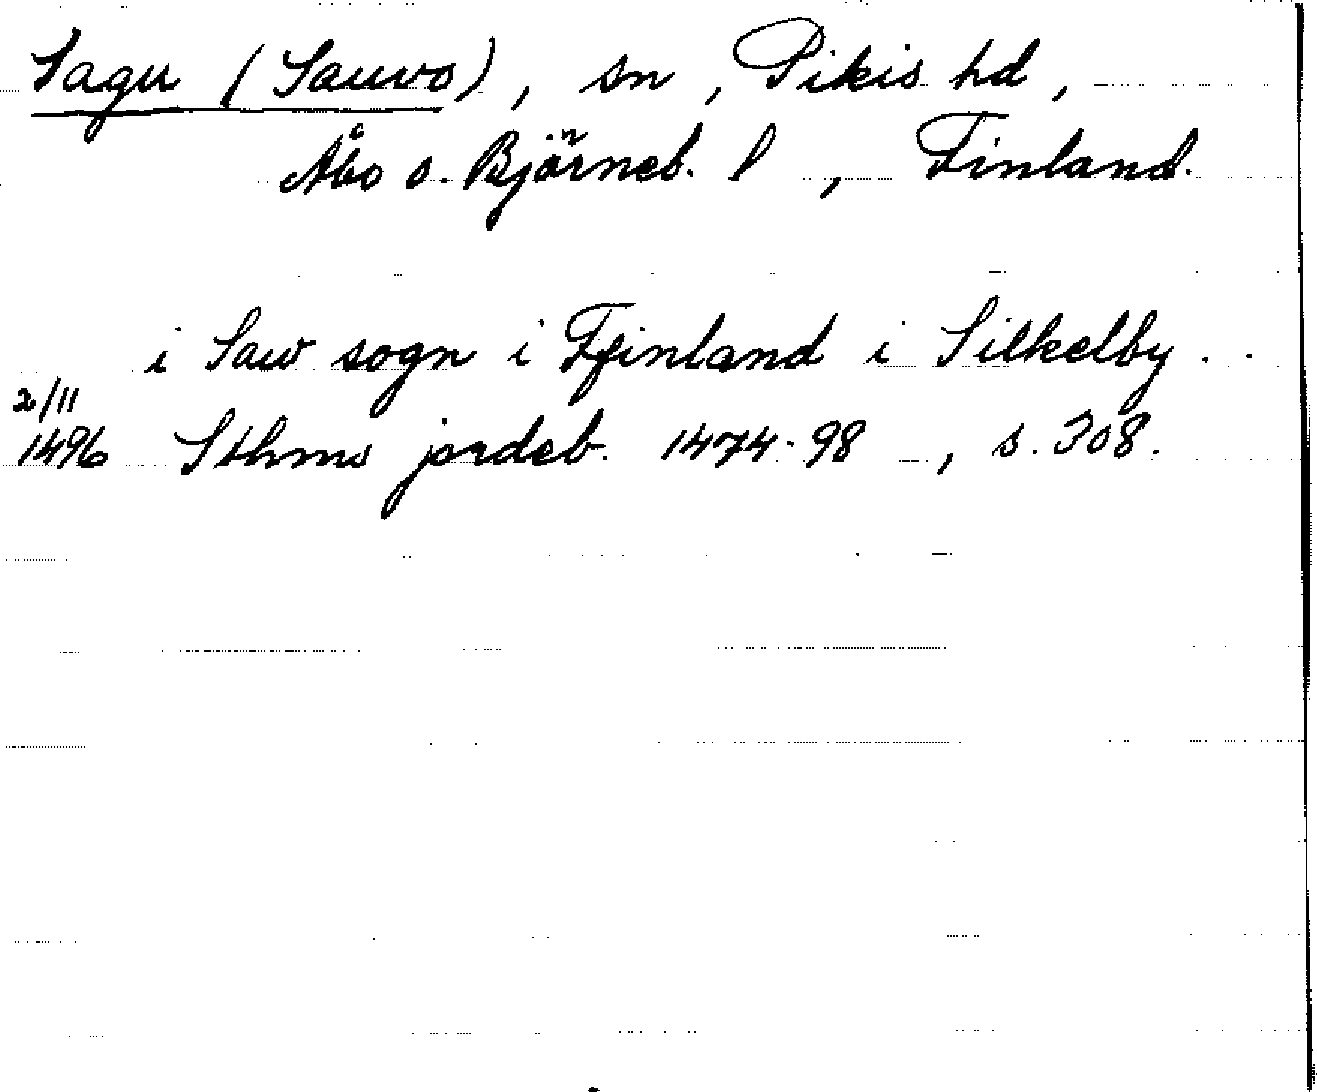 Sagu (Sauvo), sn, Pikis hd,
Åbo o. Björneb. l, Finland.
i Saw sogn i Ffinland i Silkelby . .
2/11
1496 Sthms jordeb. 1474-98, s. 308.